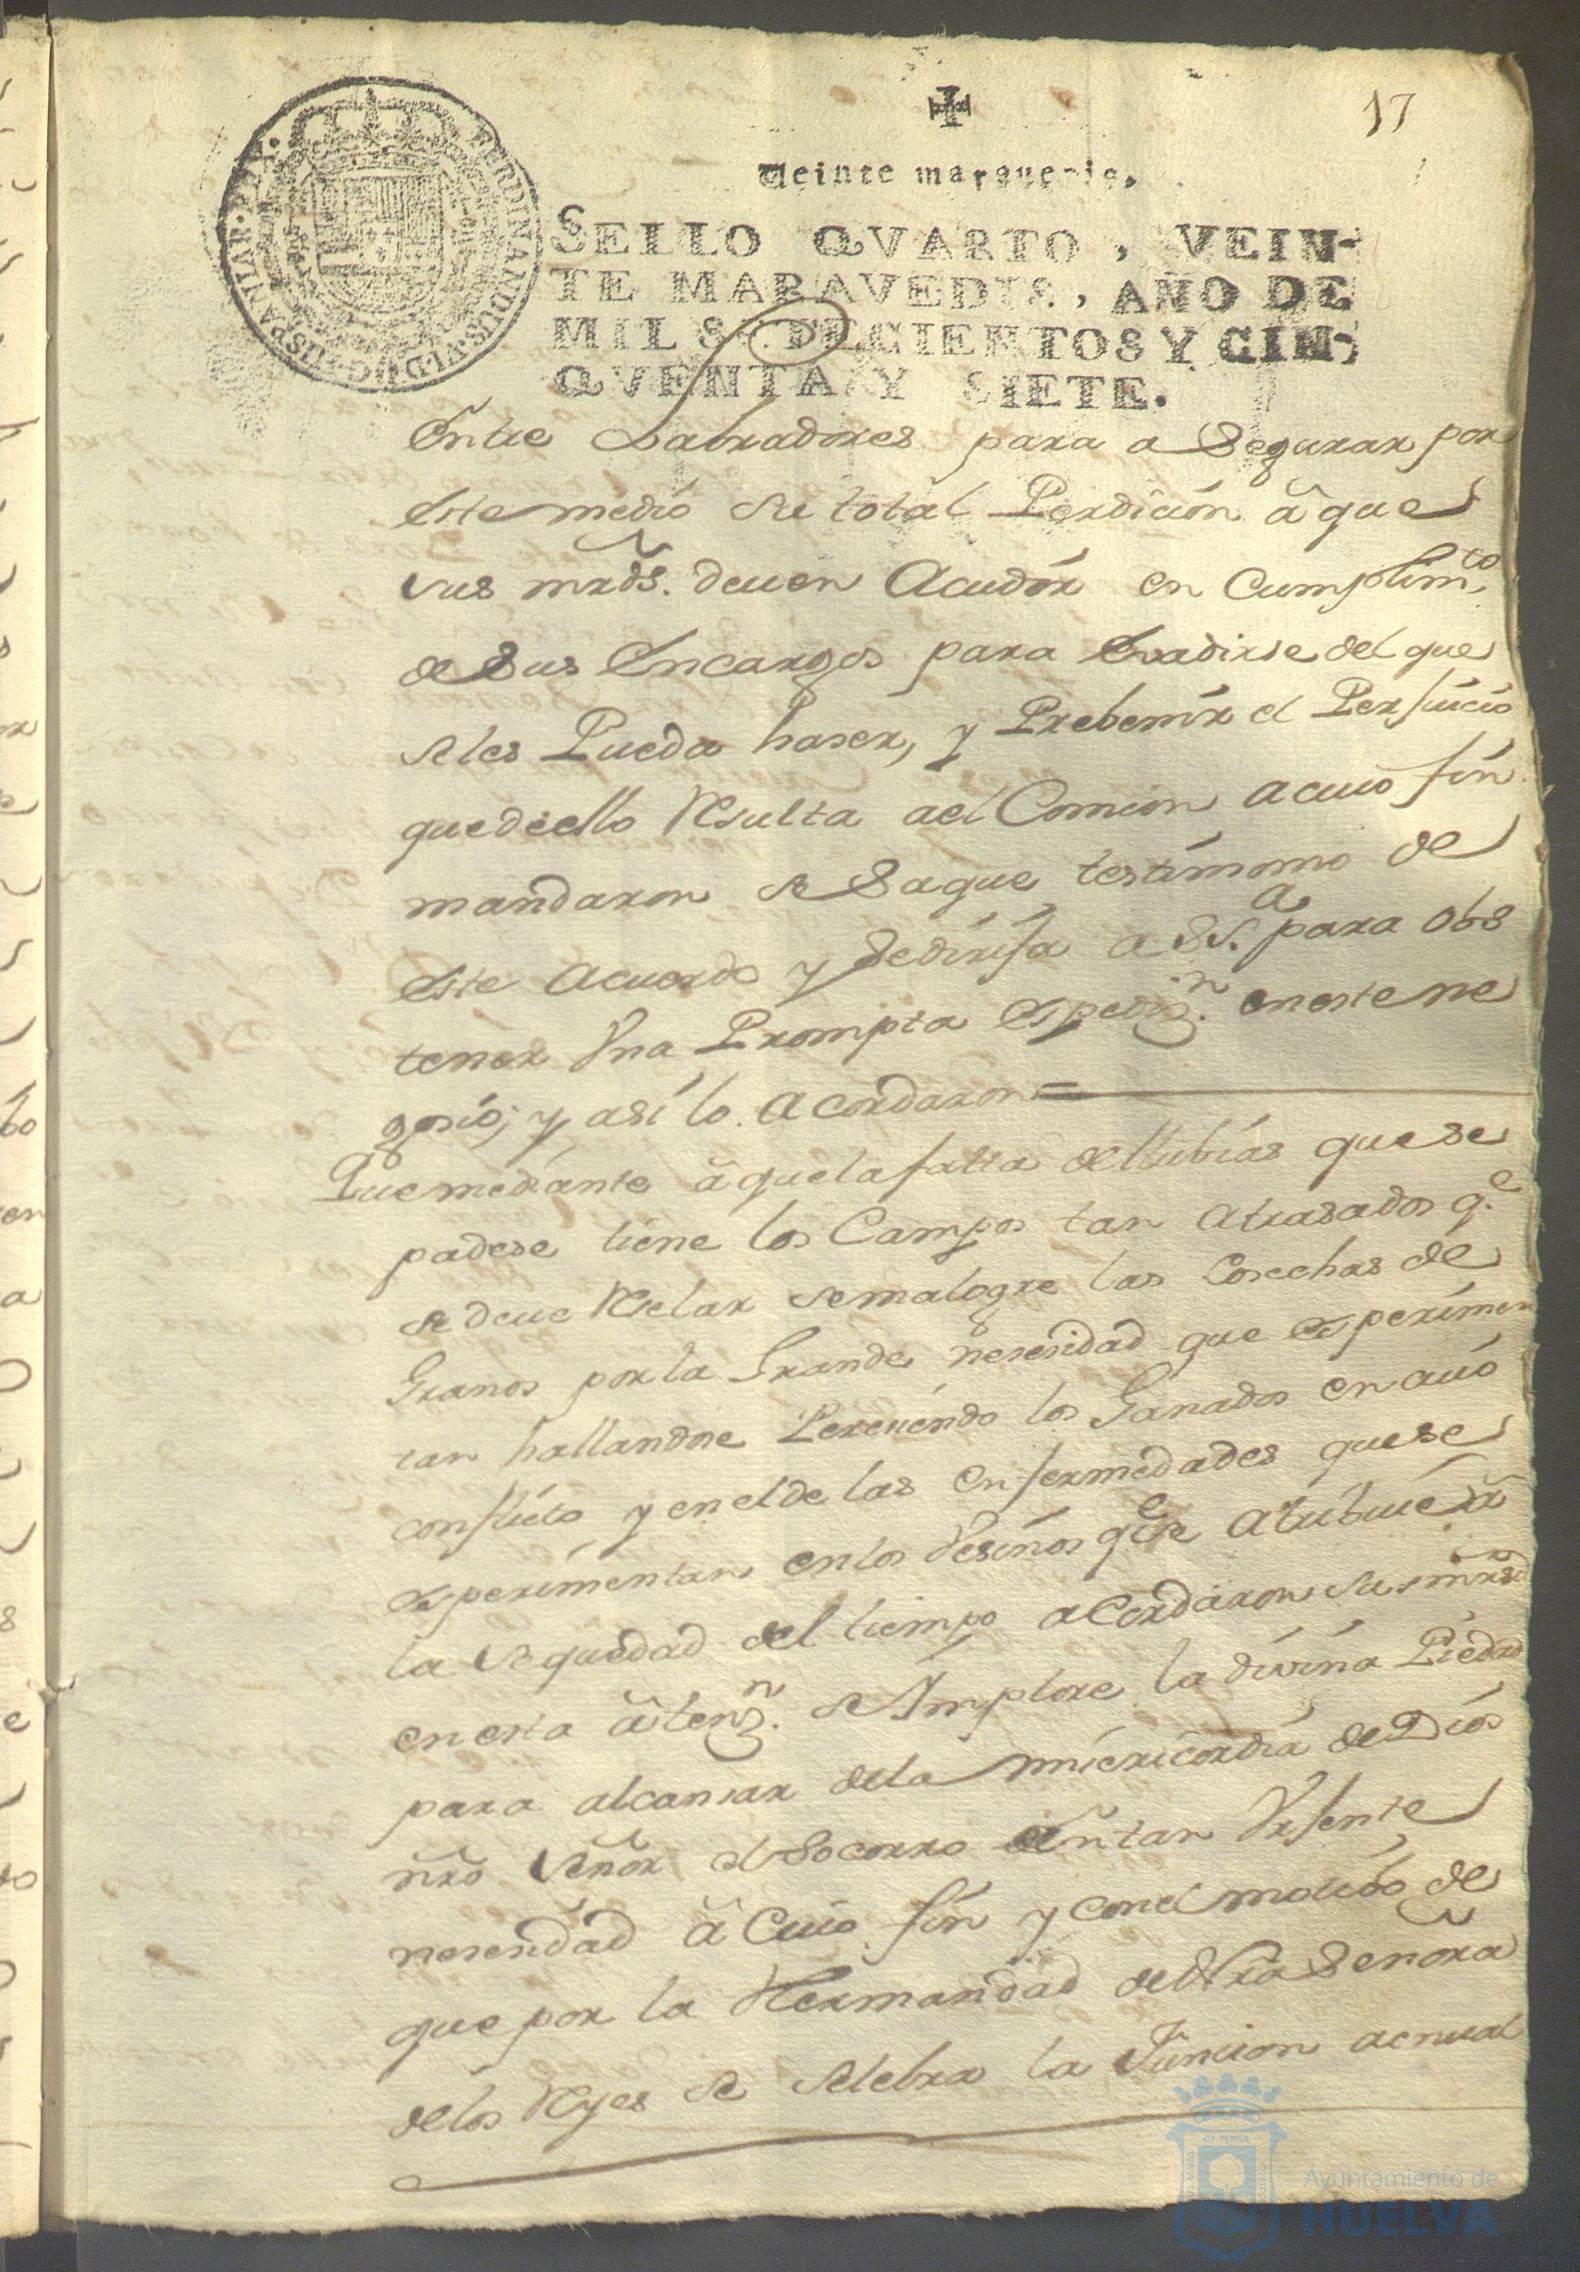 17
Veinte maravedis.
SELLO QVARTO, VEIN-
TE MARAVEDIS, AÑO DE
MIL SETECIENTOS Y CIN-
QVENTA Y SIETE.
FERDINANDUS.VI.D.G.HISPANIAR.REX.
Entre Labradores para a Segurar por
este medio su total Perdición â que
sus mrds. deven Acudir en Cumplimto.
de Sus Encargos para Evadirse del que
se les Pueda haser, y Prebenir el Perjuicio
que de ello Resulta a el Comun a cuio fin
mandaron se Saque testimonio de
este Acuerdo y Se dirija a SSa. para obs
tener Una Prompta espedizn. en este ne
gosio; y asi lo Acordaron =
Que mediante â que la falta de llubias que se
padese tiene los Campos tan Atrasados qe.
se deve Reselar se malogre las Cosechas de
Granos por la Grande nesesidad que esperimen
tan hallandose Peresiendo los Ganados en
conflicto y en el de las Enfermedades que se
esperimentan en los Vesinos qe. se Atribuie â
la sequedad del tiempo acordaron sus mrsds
en esta âtenzn. se Ymplore la divina Piedad
para alcansar de la misericordia de Dios
nro Señor el Socorro en tan Urjente
nesesidad â Cuio fin y con el motibo de
que por la Hermandad de Nra Señora
de los Reyes se selebra la Funcion acnual
Ayuntamiento de
HUELVA